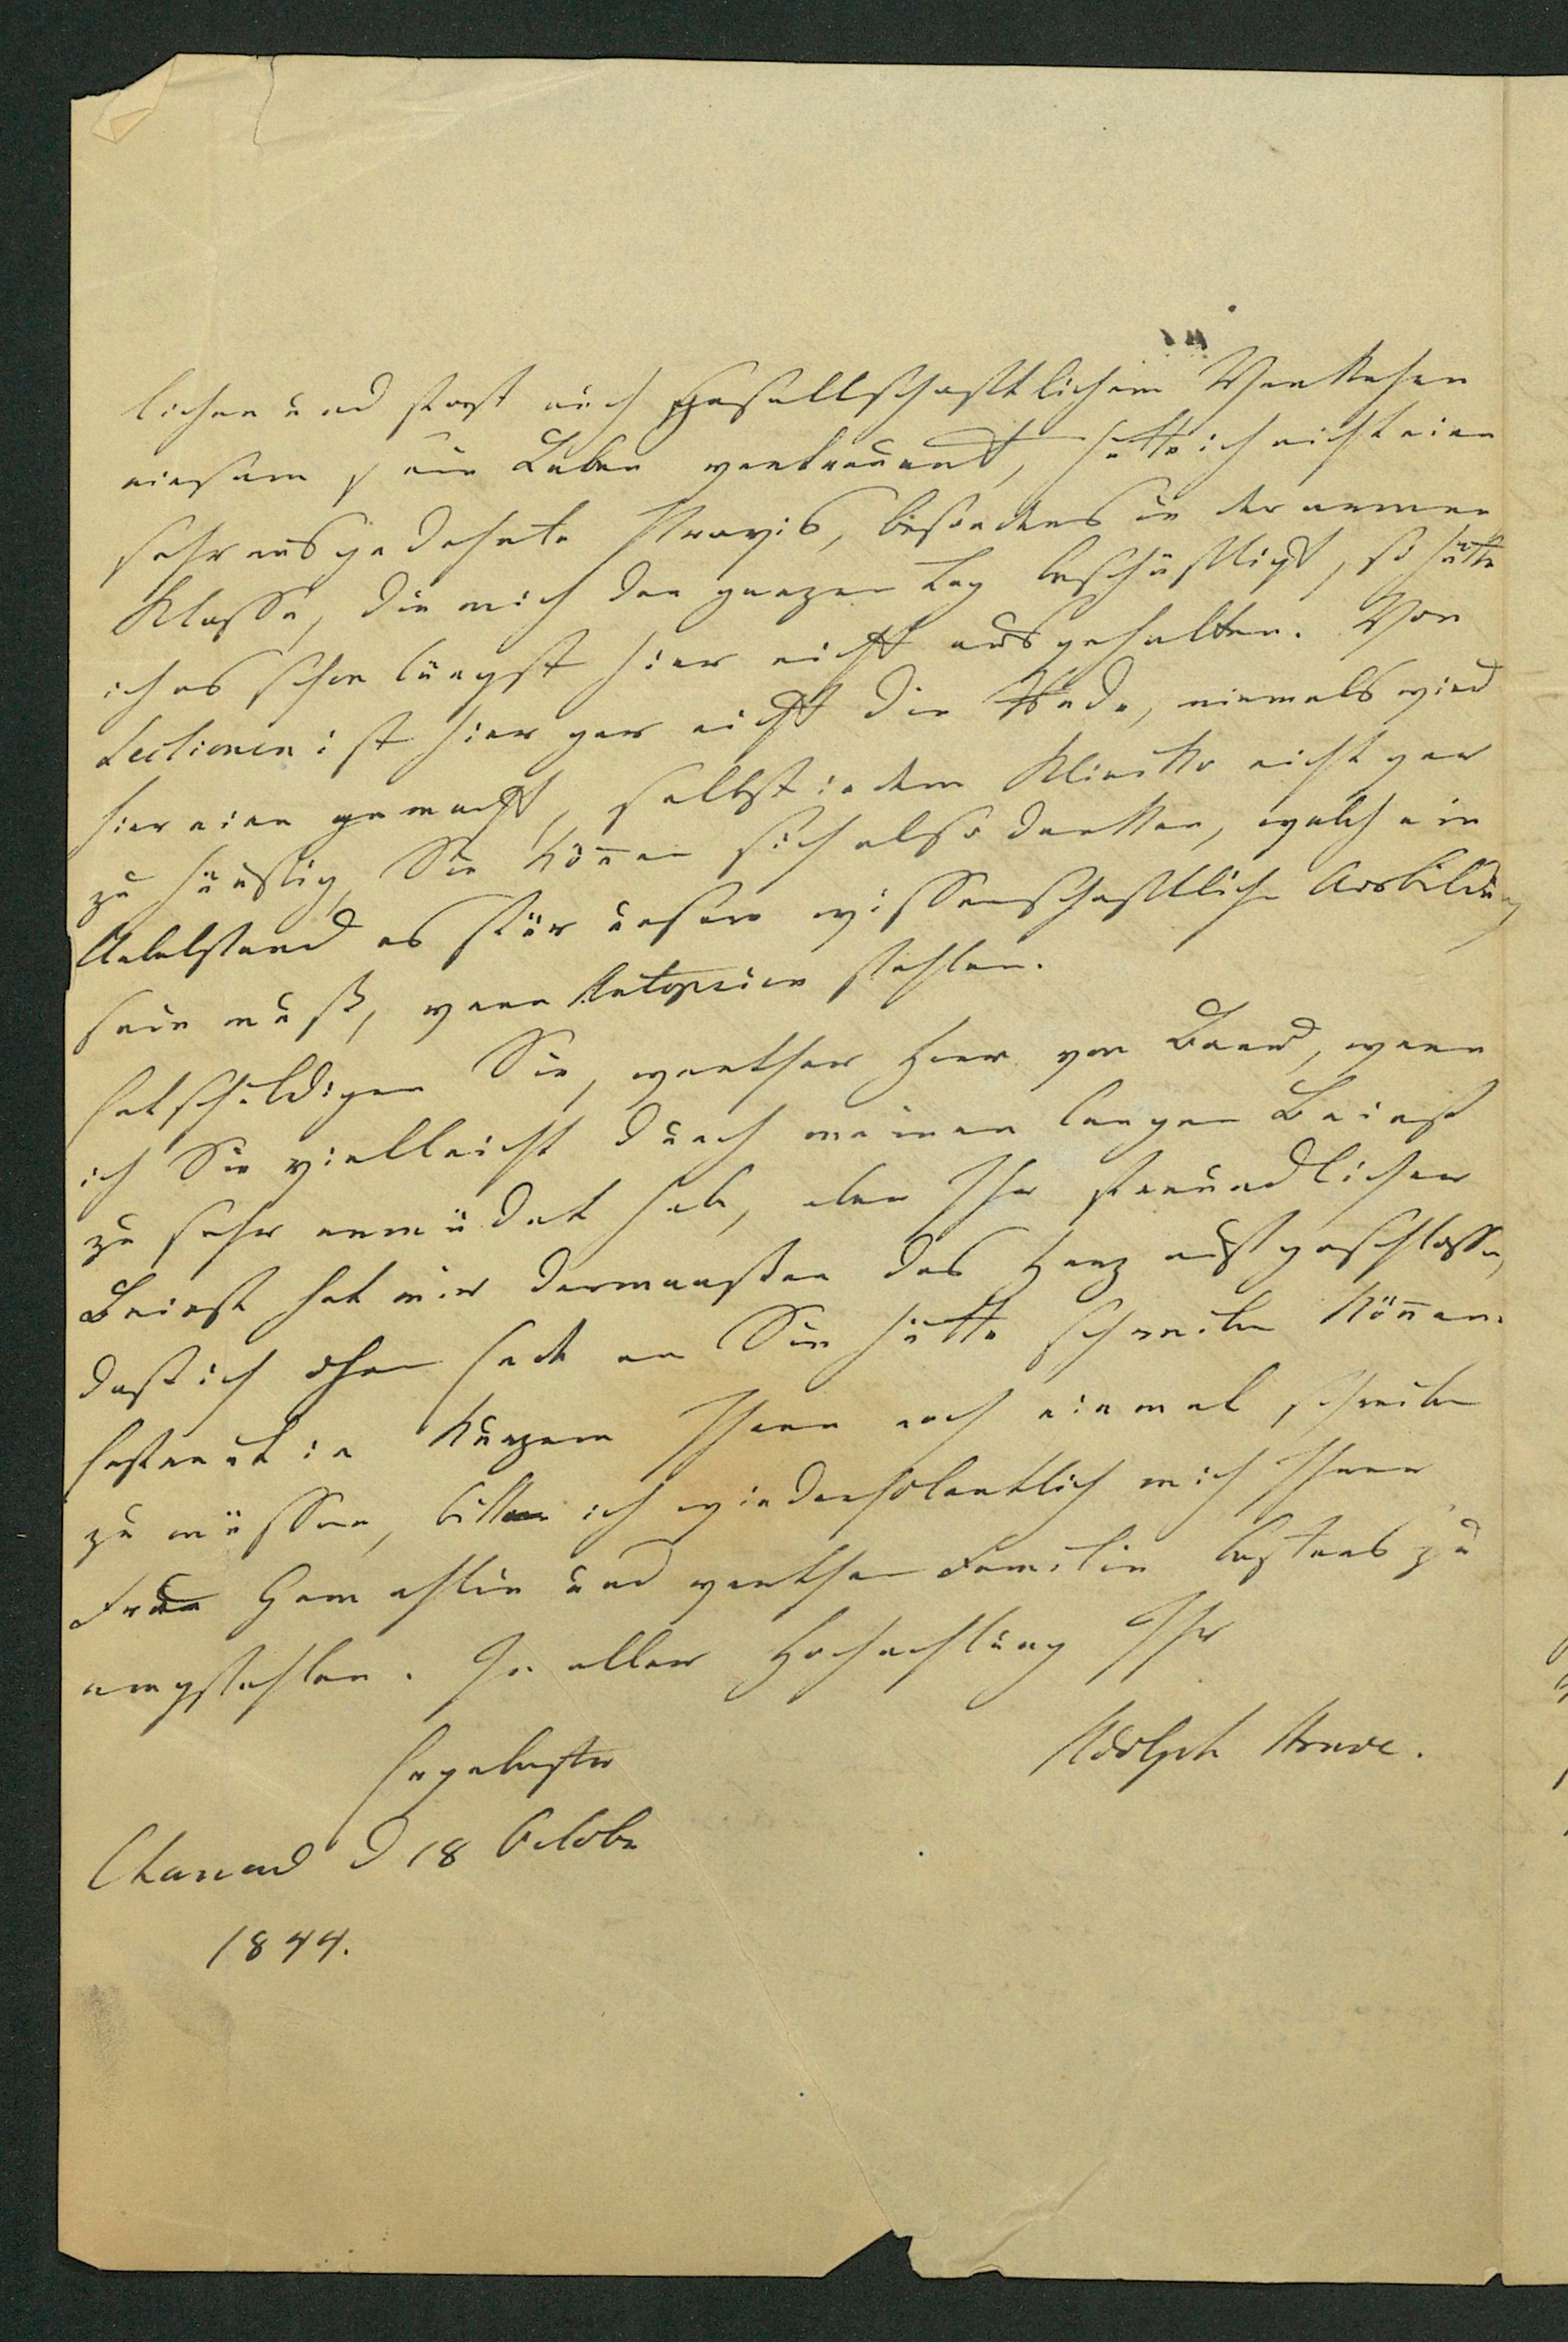 lichen und fast auch gesellschaftlichem Verkehre
einsam sein Leben vertrauend, hätte ich nicht eine
sehr ausgedehnte Praxis, besonders in der armen
Klasse, die mich den ganzen Tag beschäftigt, so hätte
ich es schon längst hier nicht ausgehalten. Von
Sectionen ist hier gar nicht die Rede, niemals wird
hier eine gemacht, selbst in dem Klinike nicht gar
zu häufig, Sie können sich also denken, welch ein
Uebelstand es für unsere wissenschaftliche Ausbildung
sein muß, wenn Autopsien fehlen.
Entschuldigen Sie, werther Herr von Baer, wenn
ich Sie vielleicht durch meinen langen Brief
zu sehr ermüdet habe, aber Ihr freundlicher
Brief hat mir dermaaßen das Herz aufgeschlossen,
daß ich ohne Ende an Sie hätte schreiben können.
Erfreut in Kurzem Ihnen noch einmal schreiben
zu müssen, bitte ich wiederholentlich mich Ihrer
Frau Gemahlin und werthen Familie bestens zu
empfehlen. In aller Hochachtung Ihr
Ergebenster
Adolph
d 18 Octobr
1844.